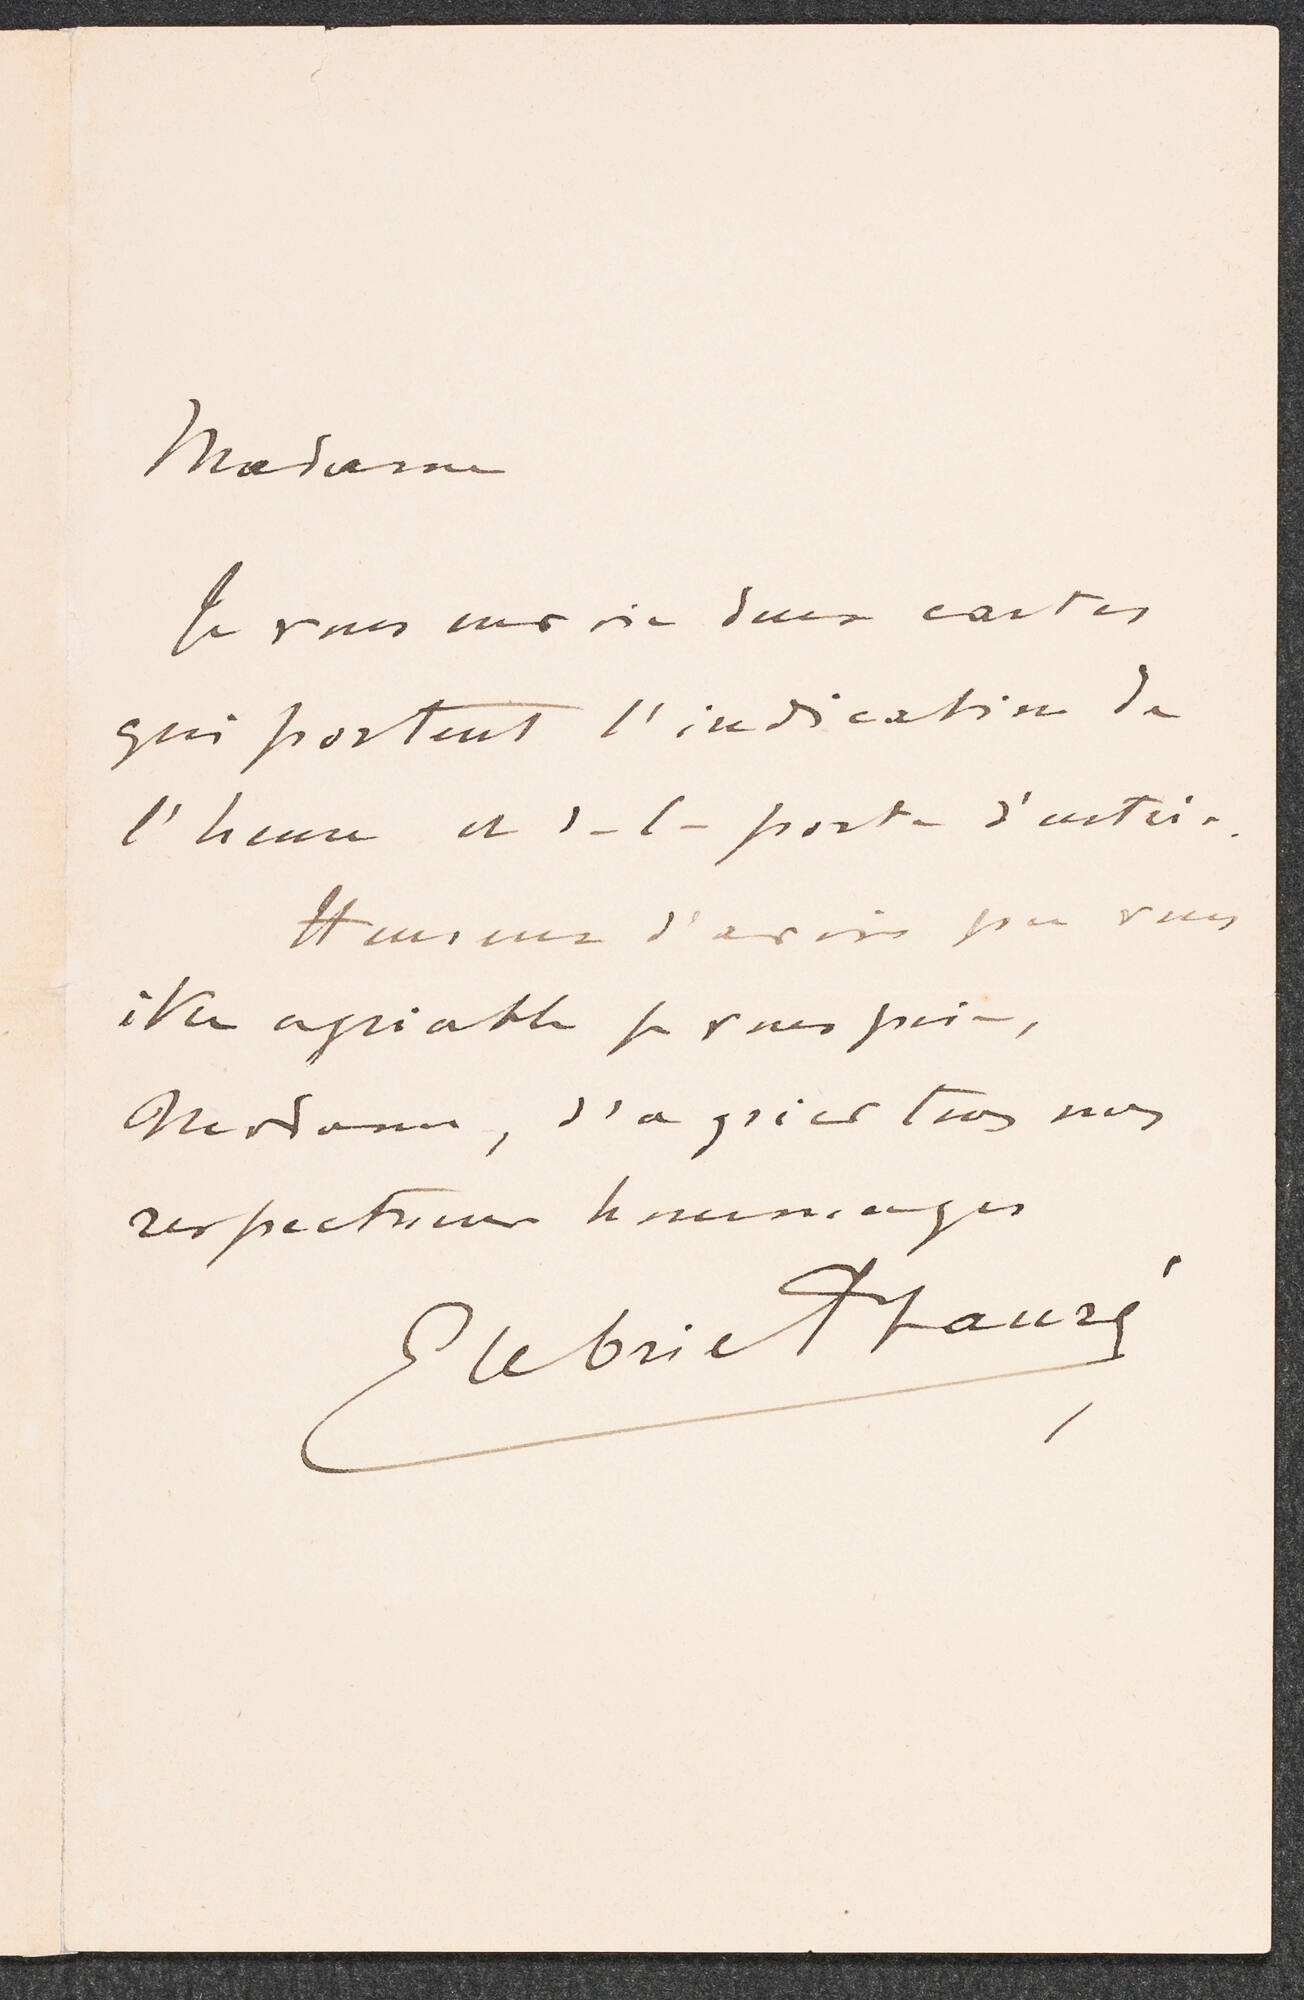 Madame
Je vous envoie deux cartes
qui portent l'indication de
l'heure et de la porte d'entrée.
Heureux d'avoir pu vous
être agréable je vous prie,
Madame, d'agréer tous mes
respectueux hommages
Gabriel Fauré